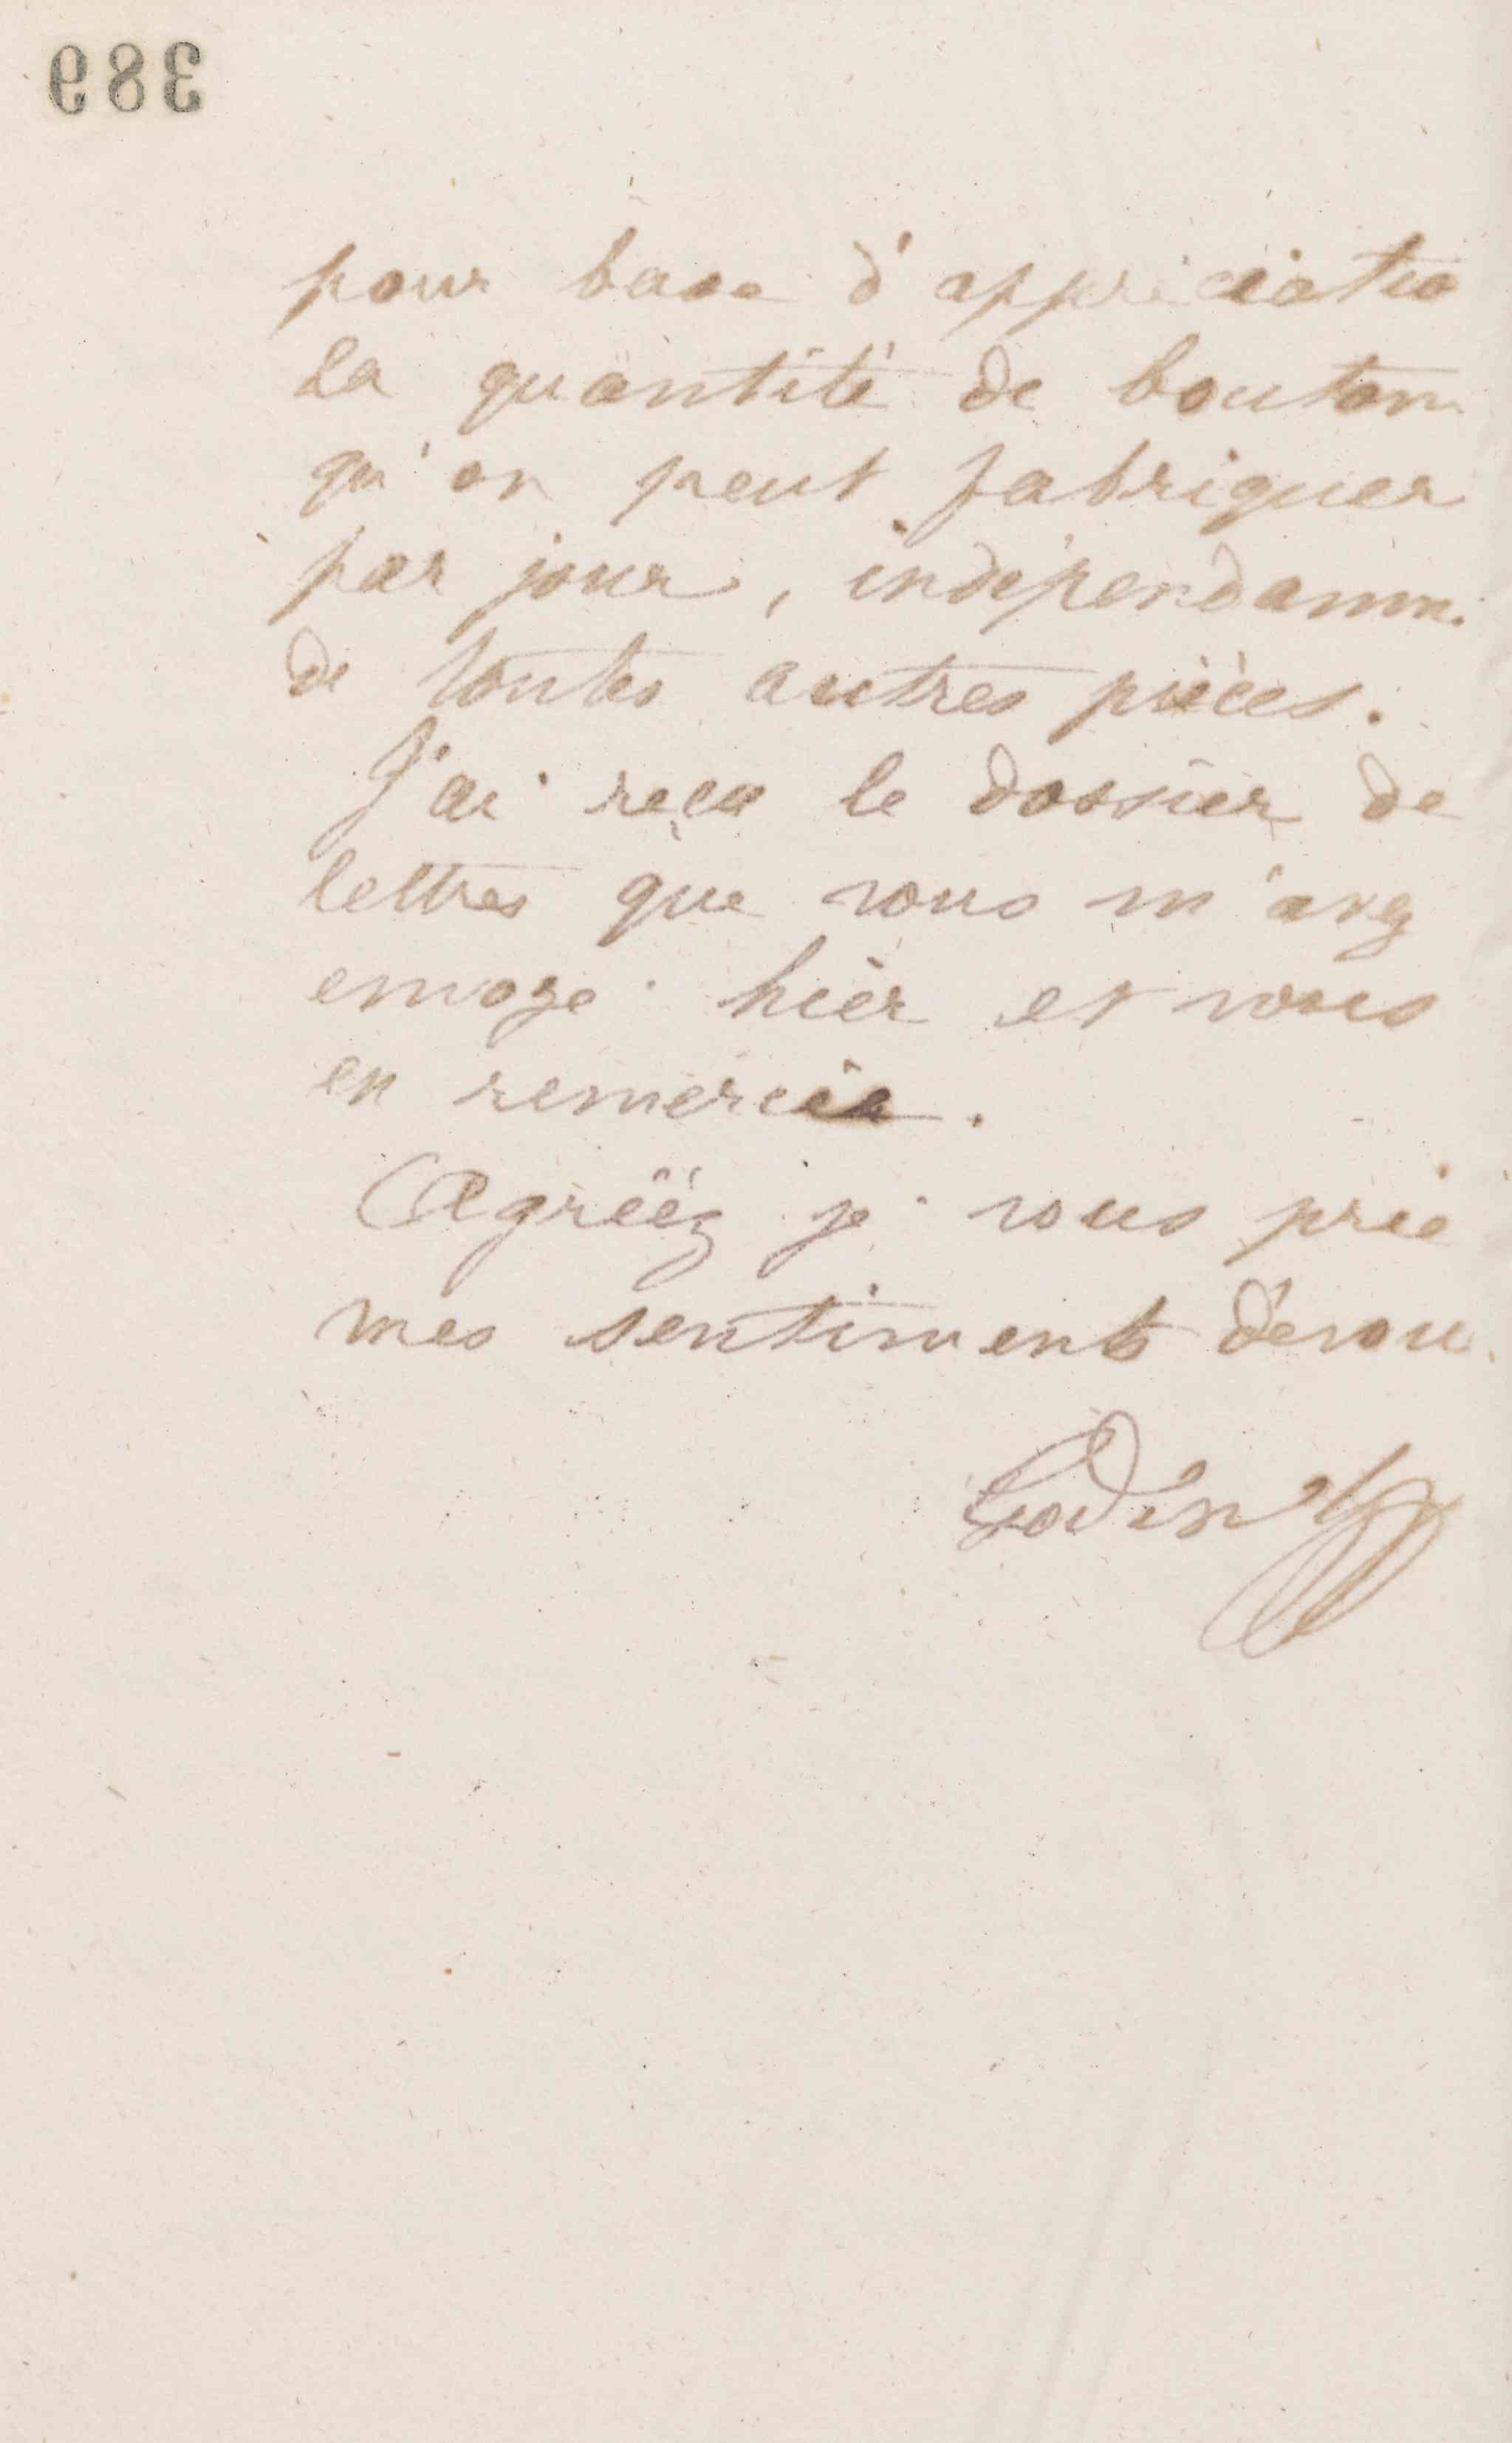 389
pour base d'appréciatio
la quantité de bouton
qu'on peut fabriquer
par jour, indépendamm.
de toutes autres pièces.
J'ai reçu le dossier de
lettres que vous m'avez
envoyé hier et vous
en remercie.
Agréez je vous prie
mes sentiments dévou
Godin